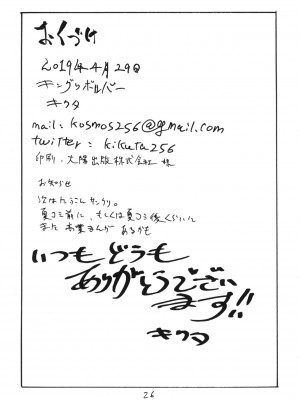 おくづけ
2019年4月29日
キングリボルバー
キクタ
mail：kosmos256@gmail.com
twitter：kikuta256
印刷：大陽出版株式会社 様
お知らせ
夏コミ前に、もしくは夏コミ後くらいに
また本業まんが あるかも
いつもどうも
ありがとうでござい
ます!!
キクタ
26